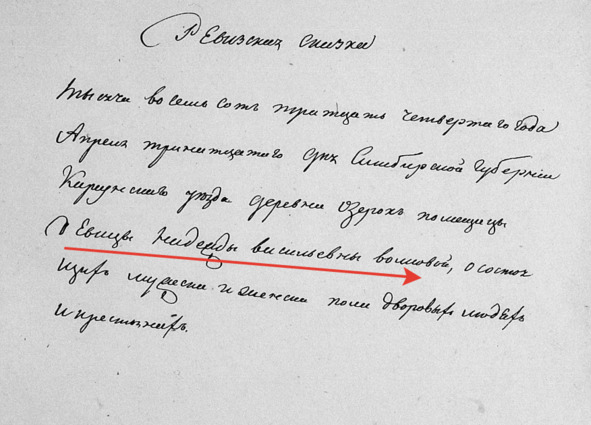 Ревизская сказка
тысяча восемь сотъ тритцать четвертого года
Апреля тринатцатого дня Симбирской Губернии
Карсунского уезда деревни Озерокъ помещицы
Девицы Надежды васильевны волковой, о состоя
щихъ мужеска и женска пола дворовыхъ людехъ
и крестьянехъ.